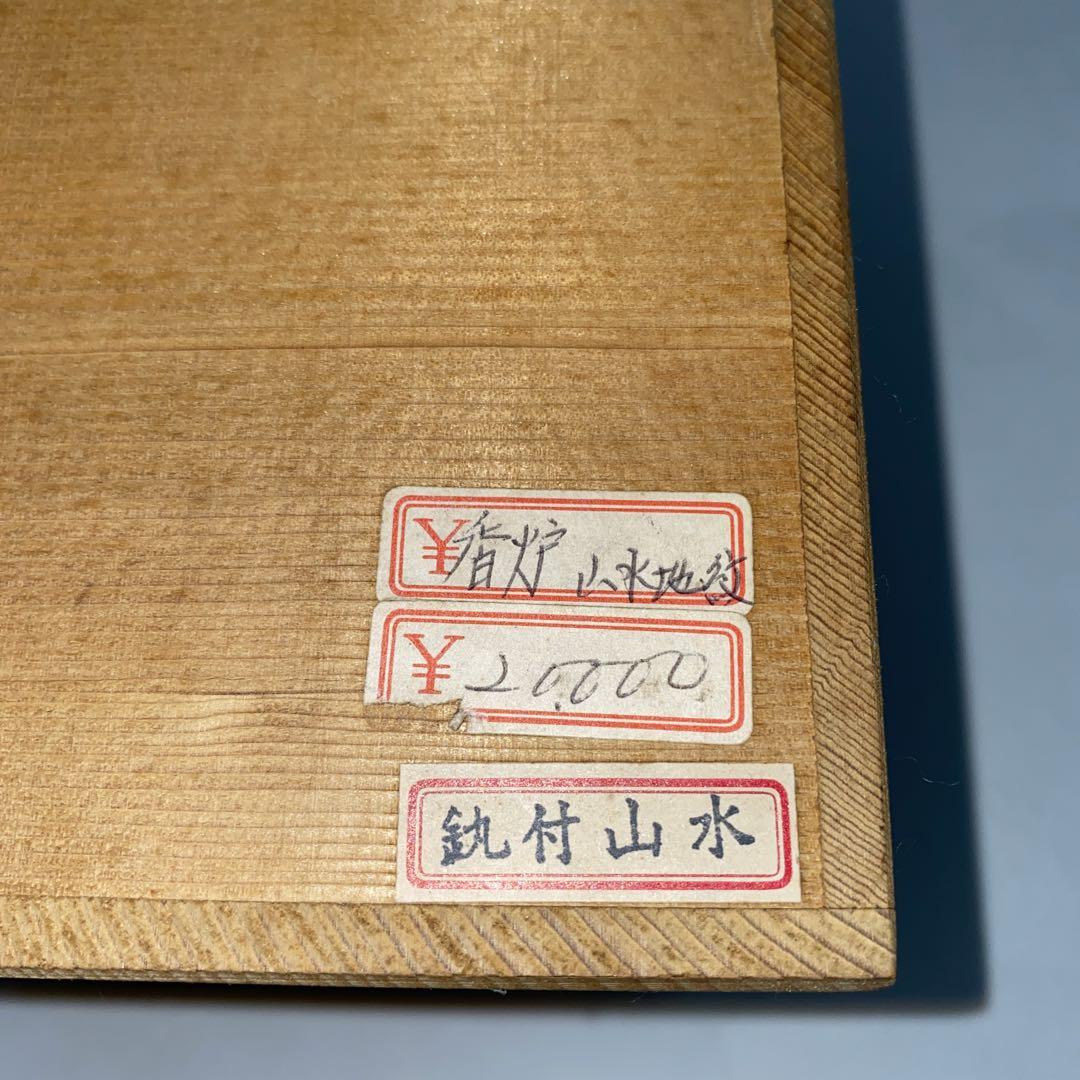 ¥香炉 山水地紋
¥20,000
釻付山水